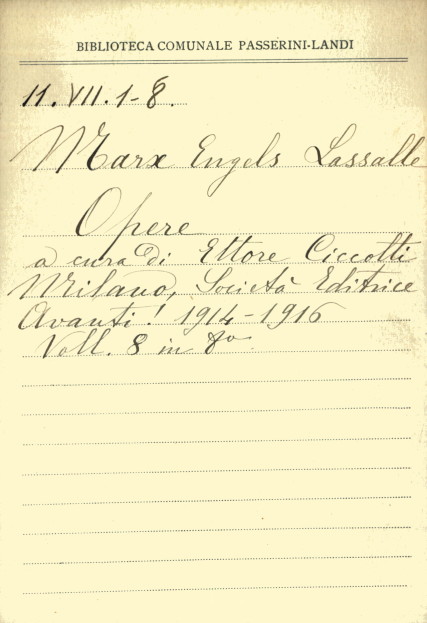 BIBLIOTECA COMUNALE PASSERINI-LANDI
11. VII. 1-8.
Marx Engels Lassalle
Opere
a cura di Ettore Ciccotti
Milano, Società Editrice
Avanti! 1914-1916
Voll. 8 in 8º